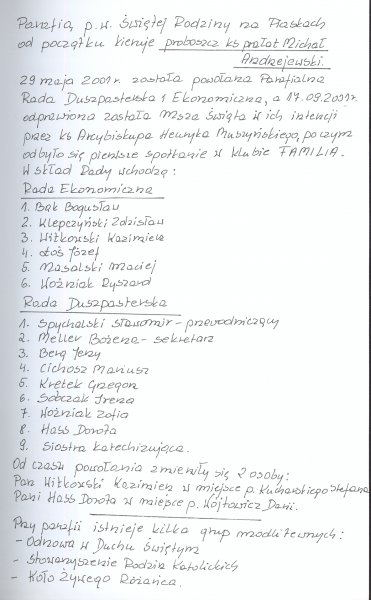 Parafią p.w. Świętej Rodziny na Piaskach
od początku kieruje proboszcz ks prałat Michał
Andrzejewski.
29 maja 2001r. została powołana Parafialna
Rada Duszpasterska i Ekonomiczna, a 17.09.2001r.
odprawiona została Msza Święta w ich intencji
przez ks Arcybiskupa Henryka Muszyńskiego, po czym
odbyło się pierwsze spotkanie w klubie FAMILIA.
W skład Rady wchodzą:
Rada Ekonomiczna
1. Bąk Bogusław
2. Klepczyński Zdzisław
3. Witkowski Kazimierz
4. Łoś Józef
5. Masalski Maciej
6. Woźniak Ryszard
Rada Duszpasterska
1. Spychalski Sławomir - przewodniczący
2. Meller Bożena - sekretarz
3. Berg Jerzy
4. Cichosz Mariusz
5. Kretek Grzegorz
6. Sobczak Irena
7. Woźniak Zofia
8. Hass Dorota
9. Siostra katechizująca.
Od czasu powołania zmieniły się 2 osoby:
Pan Witkowski Kazimierz w miejsce p. Kucharskiego Stefana
Pani Hass Dorota w miejsce p. Wójtowicz Danii.
Przy parafii istnieje kilka grup modlitewnych:
- Odnowa w Duchu Świętym
- Stowarzyszenie Rodzin Katolickich
- Koło Żywego Różańca.